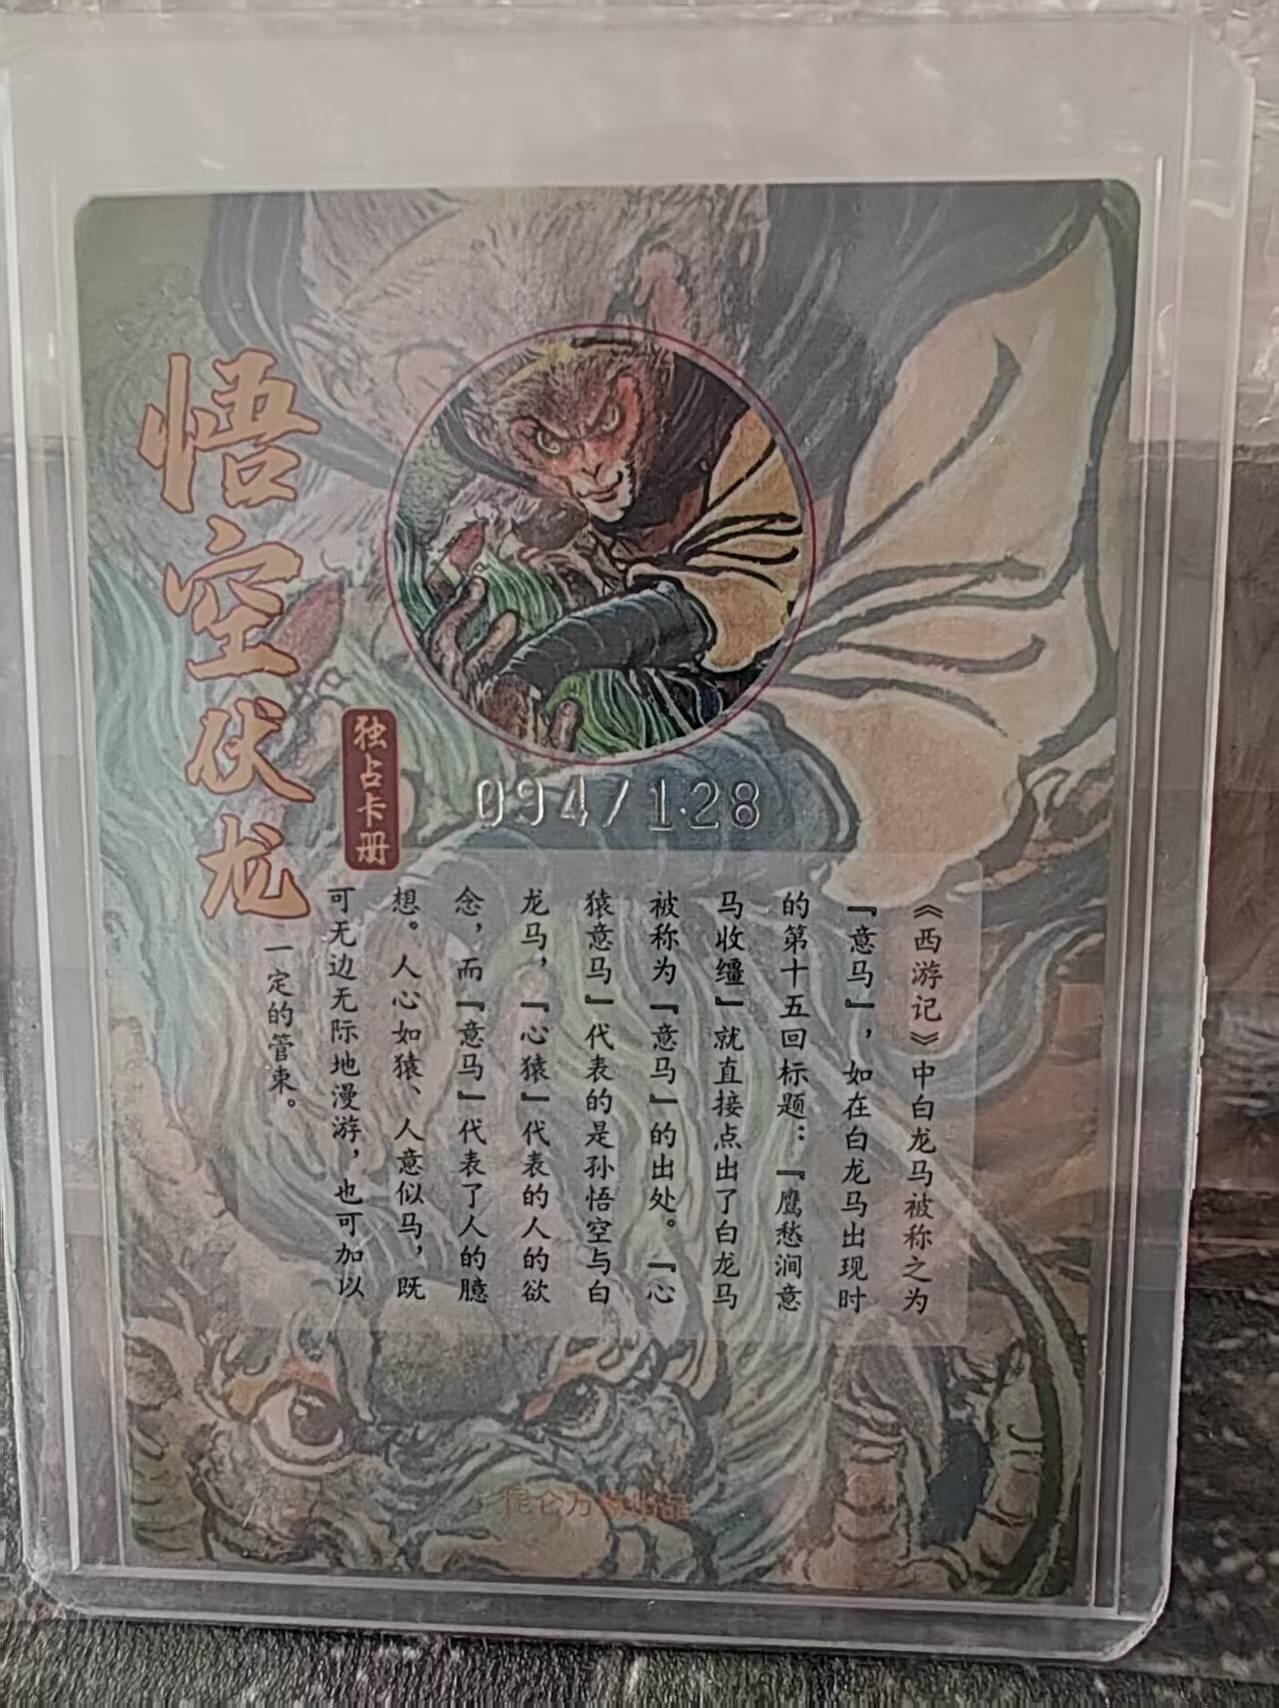 悟空伏龙
独占卡册
094/128
《西游记》中白龙马被称之为
『意马』，如在白龙马出现时
的第十五回标题：『鹰愁涧意
马收缰』就直接点出了白龙马
被称为『意马』的出处。『心
猿意马』代表的是孙悟空与白
龙马，『心猿』代表的人的欲
念，而『意马』代表了人的臆
想。人心如猿、人意似马，既
可无边无际地漫游，也可加以
一定的管束。